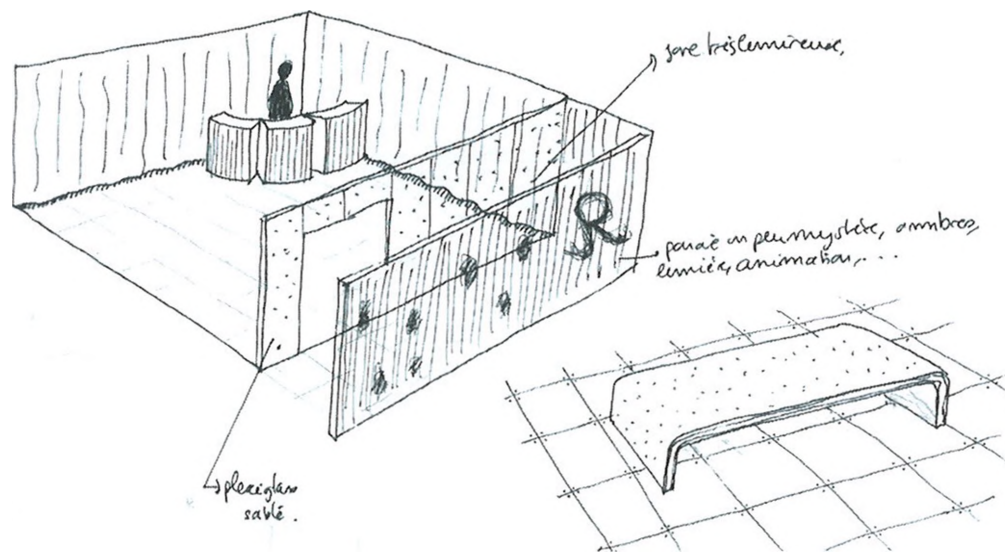 zone très lumineuse,
paroie un peu mystère, ombres,
lumière, animation, ...
plexiglass
sablé.